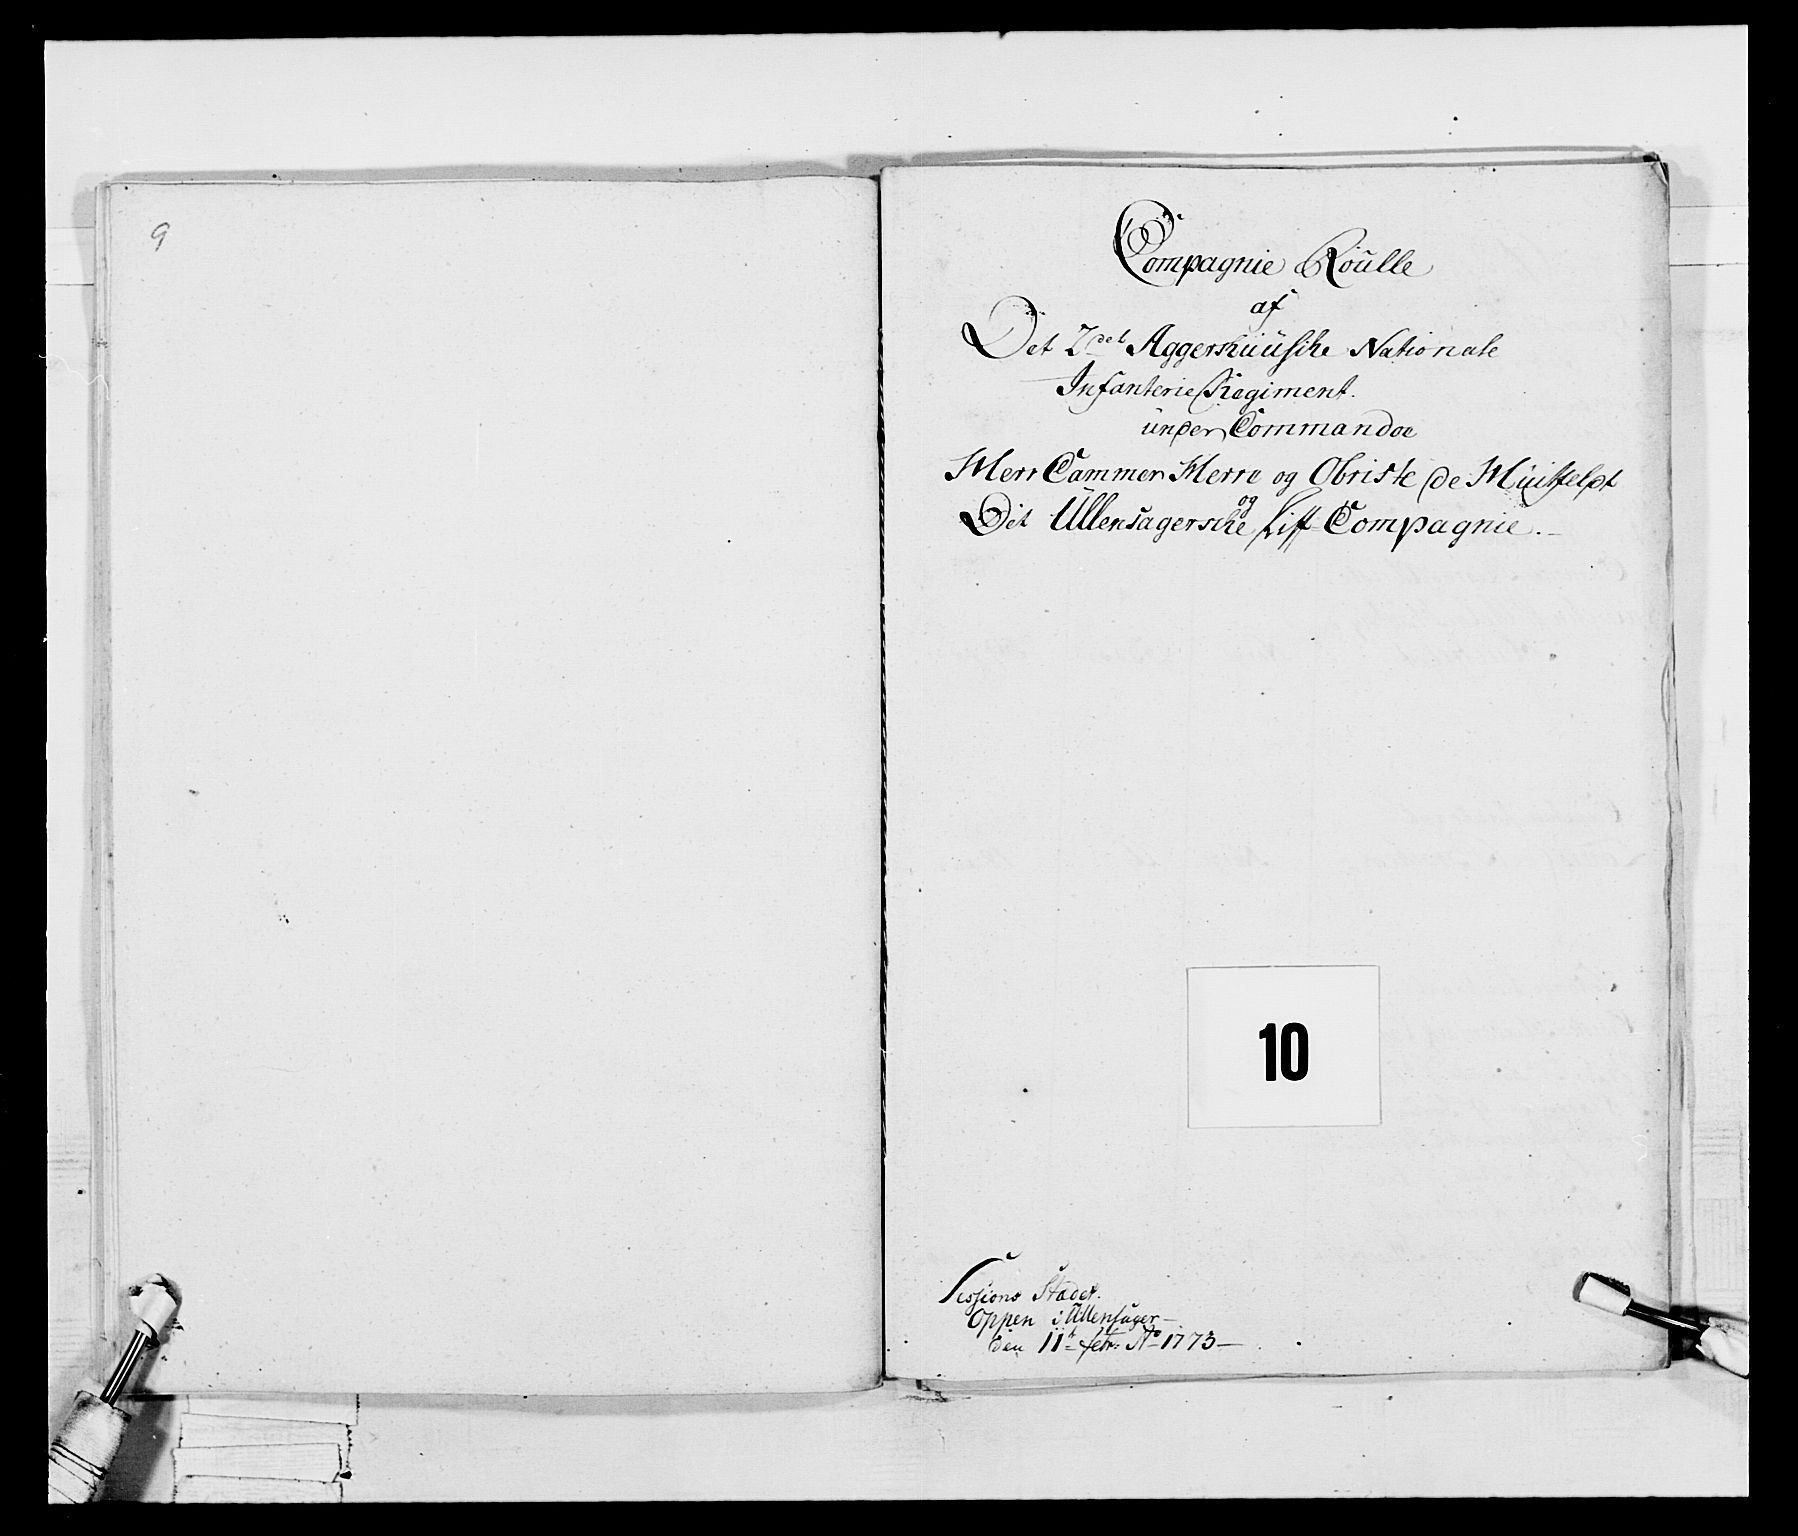 9
Compagnie Roulle
af
Det 2det Aggershuusiske Nationale
Infanterie Regiment.
under Commandoe
Herr Cammer Herre og Obriste de Huitfeldt
Dit Ullensagerske og Liff Compagnie.
10
Sessions Stadet.
Oppen i Ullensager
Den 11t febr: Ao 1773